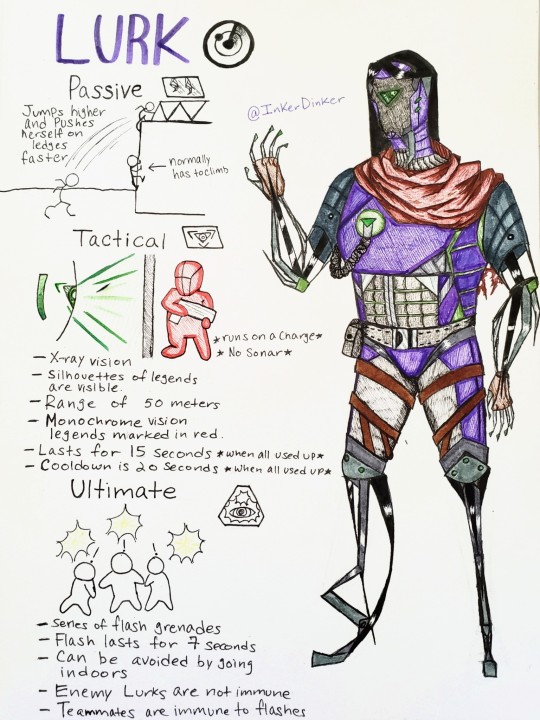 LURK
Passive
@InkerDinker
Jumps higher
and Pushes
herself on
ledges
faster
normally
has to climb
Tactical
*runs on a charge*
* No Sonar*
- X-ray vision
- Silhouettes of legends
are visible.
- Range of 50 meters
- Monochrome vision
legends marked in red.
- Lasts for 15 seconds *when all used up*
- Cooldown is 20 seconds *when all used up*
Ultimate
! ! !
- series of flash grenades
- Flash lasts for 7 seconds
- Can be avoided by going
indoors
- Enemy Lurks are not immune
- Teammates are immune to flashes